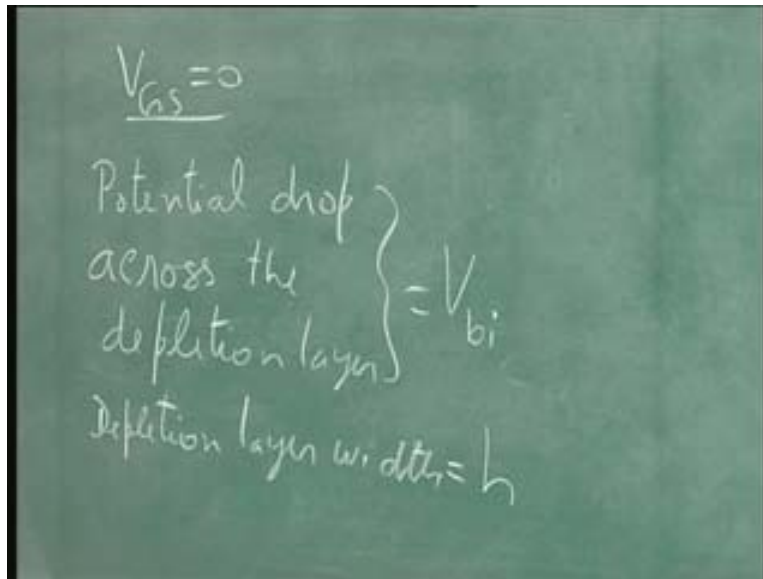 V_GS = 0
Potential drop
across the
depletion layer } = V_bi
Depletion layer width = h